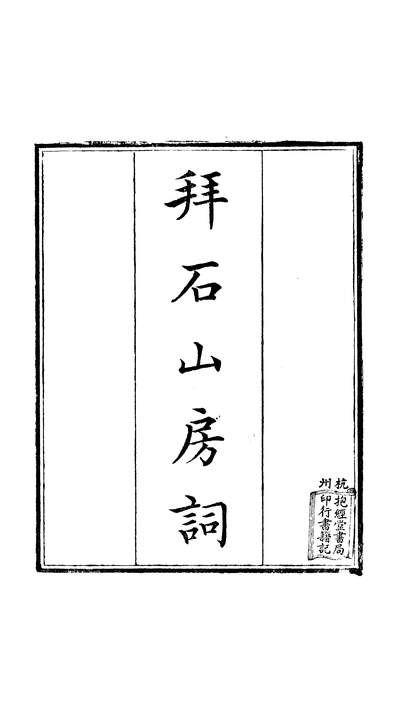 拜石山房詞
杭州
抱經堂書局
印行書籍記